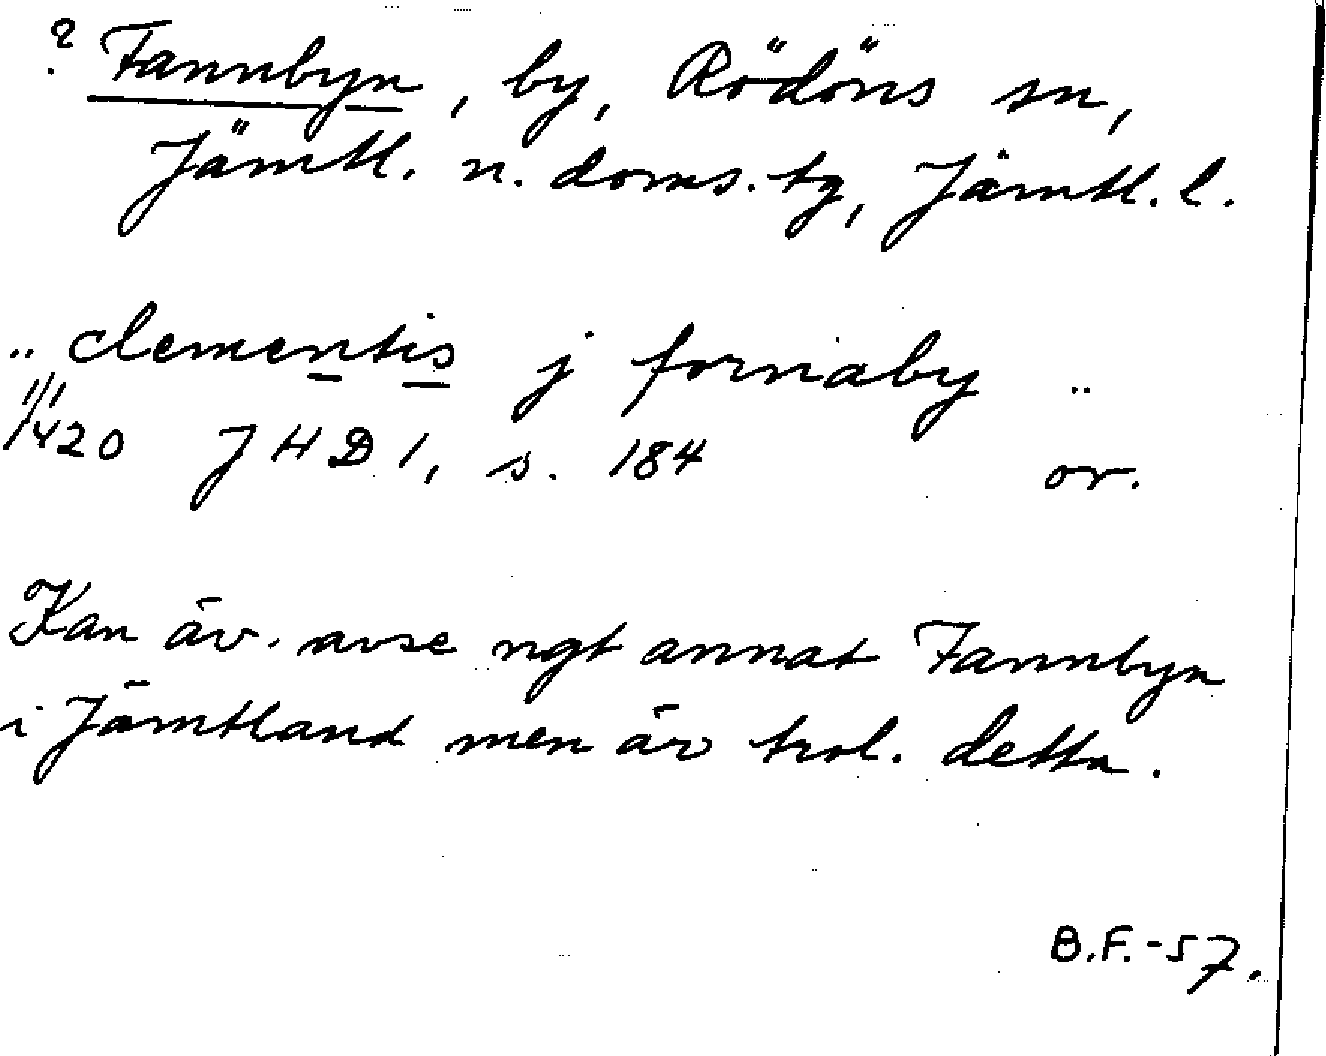 ? Fannbyn, by, Rödöns sn,
Jämtl. n. doms. tg, Jämtl. l.
.. clementis j fornaby ..
11/1 1420 JHD 1, s. 184 or.
Kan äv. avse ngt annat Fannbyn
i Jämtland men är trol. detta.
B.F.-57.